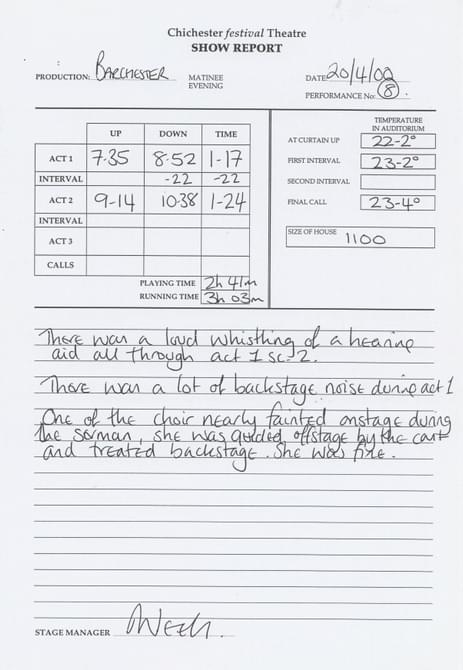 Chichester festival Theatre
SHOW REPORT
PRODUCTION: BARCHESTER MATINEE EVENING DATE 20/4/00
PERFORMANCE No: 8.
UP DOWN TIME
ACT 1 7.35 8.52 1-17
INTERVAL -22 -22
ACT 2 9-14 10.38 1-24
INTERVAL
ACT 3
CALLS
PLAYING TIME 2h 41m
RUNNING TIME 3h 03m
TEMPERATURE
IN AUDITORIUM
AT CURTAIN UP 22-2°
FIRST INTERVAL 23-2°
SECOND INTERVAL
FINAL CALL 23-4°
SIZE OF HOUSE 1100
There was a loud whistling of a hearing
aid all through act 1 sc-2.
There was a lot of backstage noise during act 1
One of the choir nearly fainted onstage during
the serman, she was guided offstage by the cast
and treated backstage. She was fine.
STAGE MANAGER